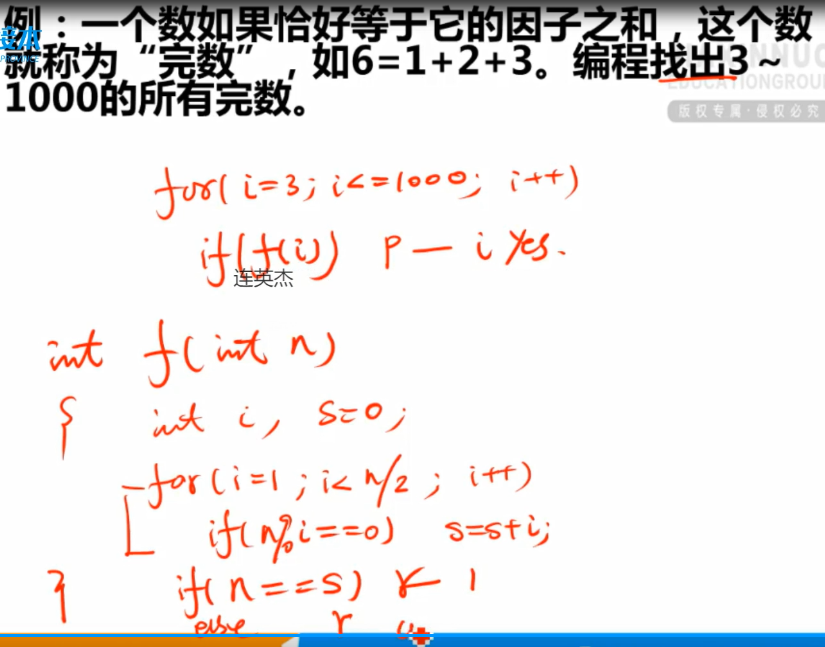 例：一个数如果恰好等于它的因子之和，这个数
就称为“完数”，如6=1+2+3。编程找出3～
1000的所有完数。
EDUCATIONGROUP
版权专属·侵权必究
for(i=3; i<=1000; i++)
if(f(i)) P — i Yes.
连英杰
int f(int n)
{ int i, s=0;
for(i=1; i<n/2; i++)
if(n%i==0) s=s+i;
} if(n==s) r 1
else r